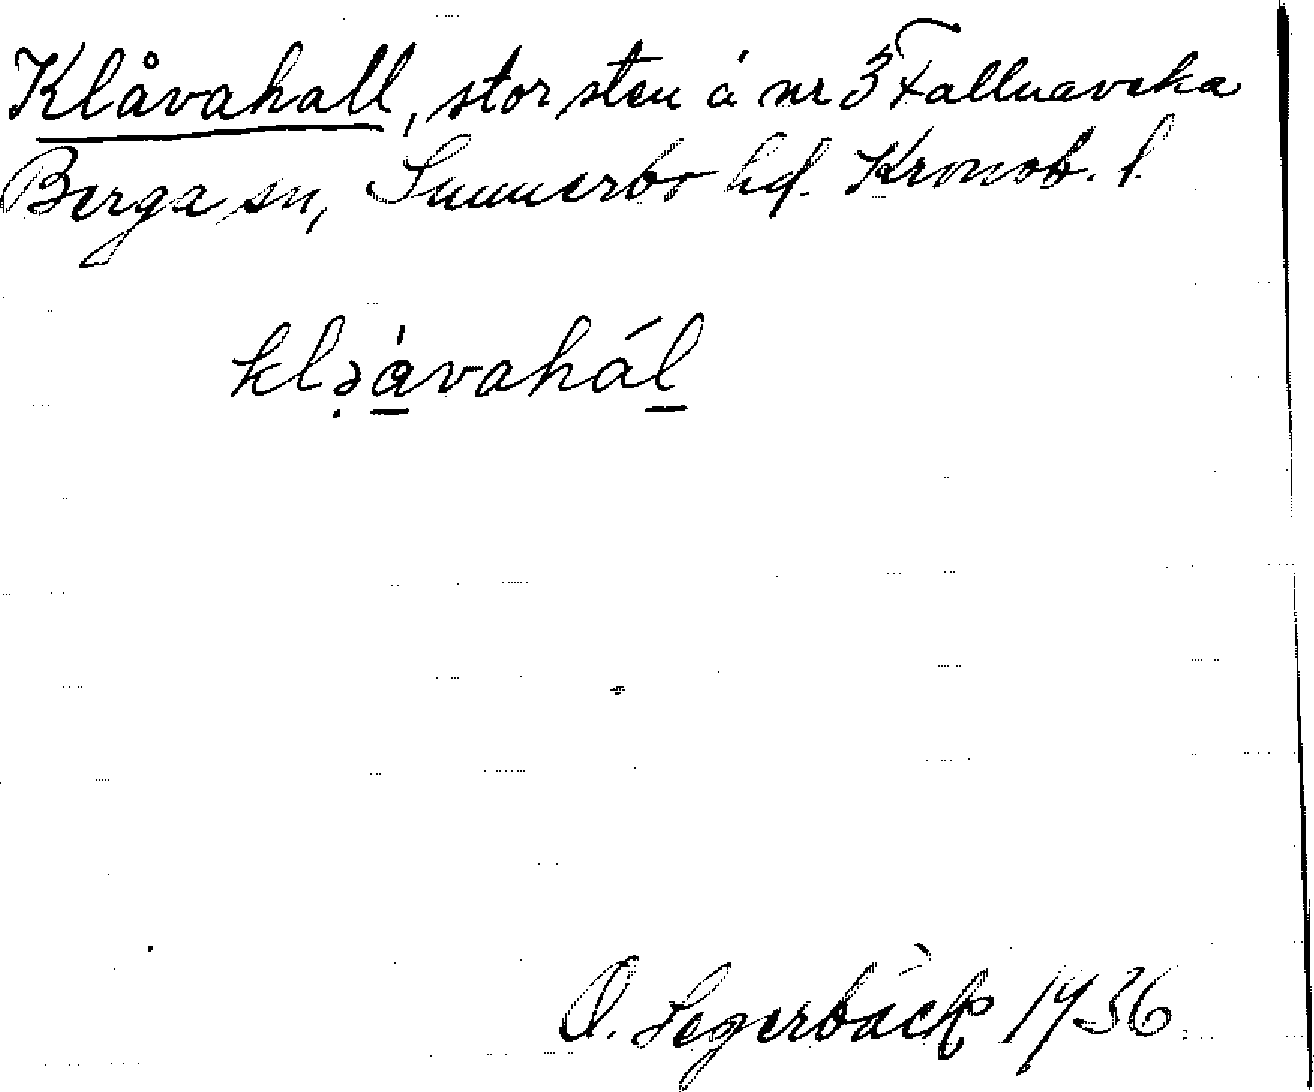 Klåvahall, stor sten å nr 3 Fallnaveka
Berga sn, Sunnerbo hd. Kronob. l.
klə̣a̱̍vaháḻ
O. Segerbäck 1936